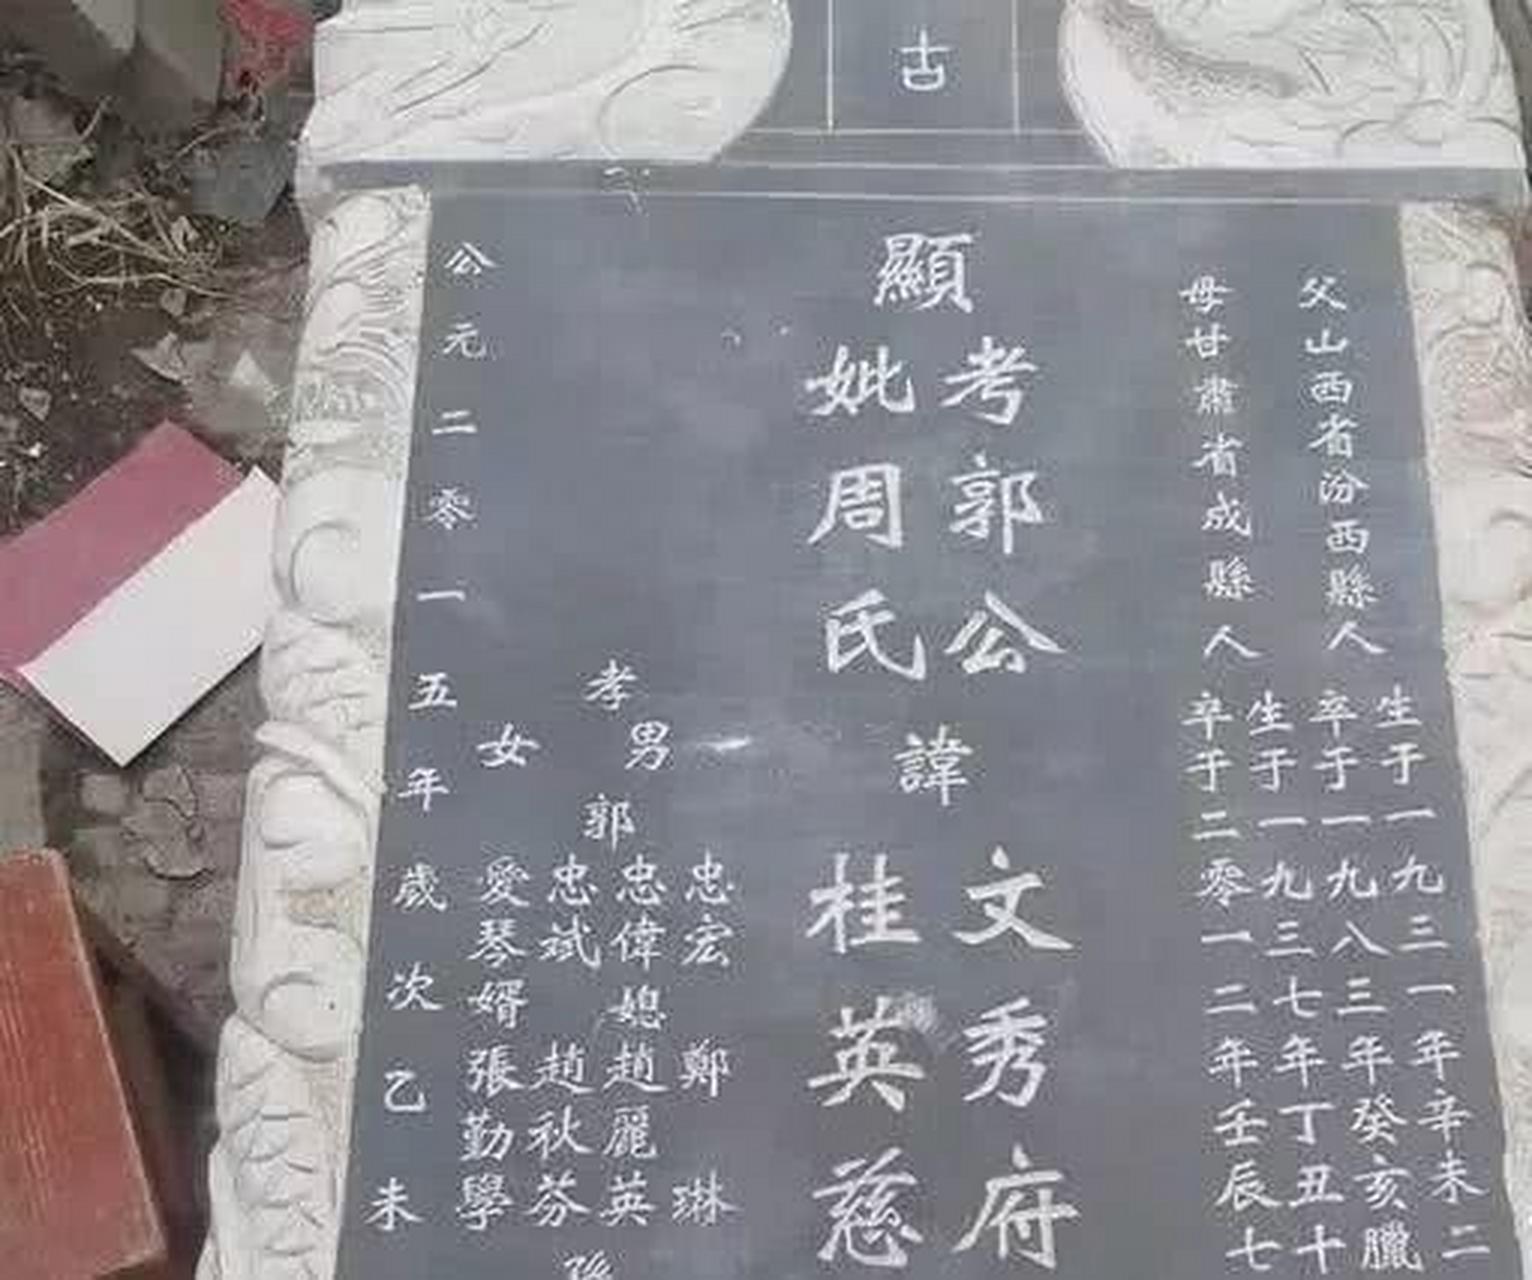 古
父山西省汾西縣人
生于一九三一年辛未二
卒于一九八三年癸亥臘
母甘肅省成縣人
生于一九三七年丁丑十
卒于二零一二年壬辰七
顯
考郭公
妣周氏
諱
文秀府
桂英慈
孝
男
女
郭
忠宏
忠偉
忠斌
愛琴婿
媳
鄭琳
趙麗英
趙秋芬
張勤學
孫
公元二零一五年歲次乙未